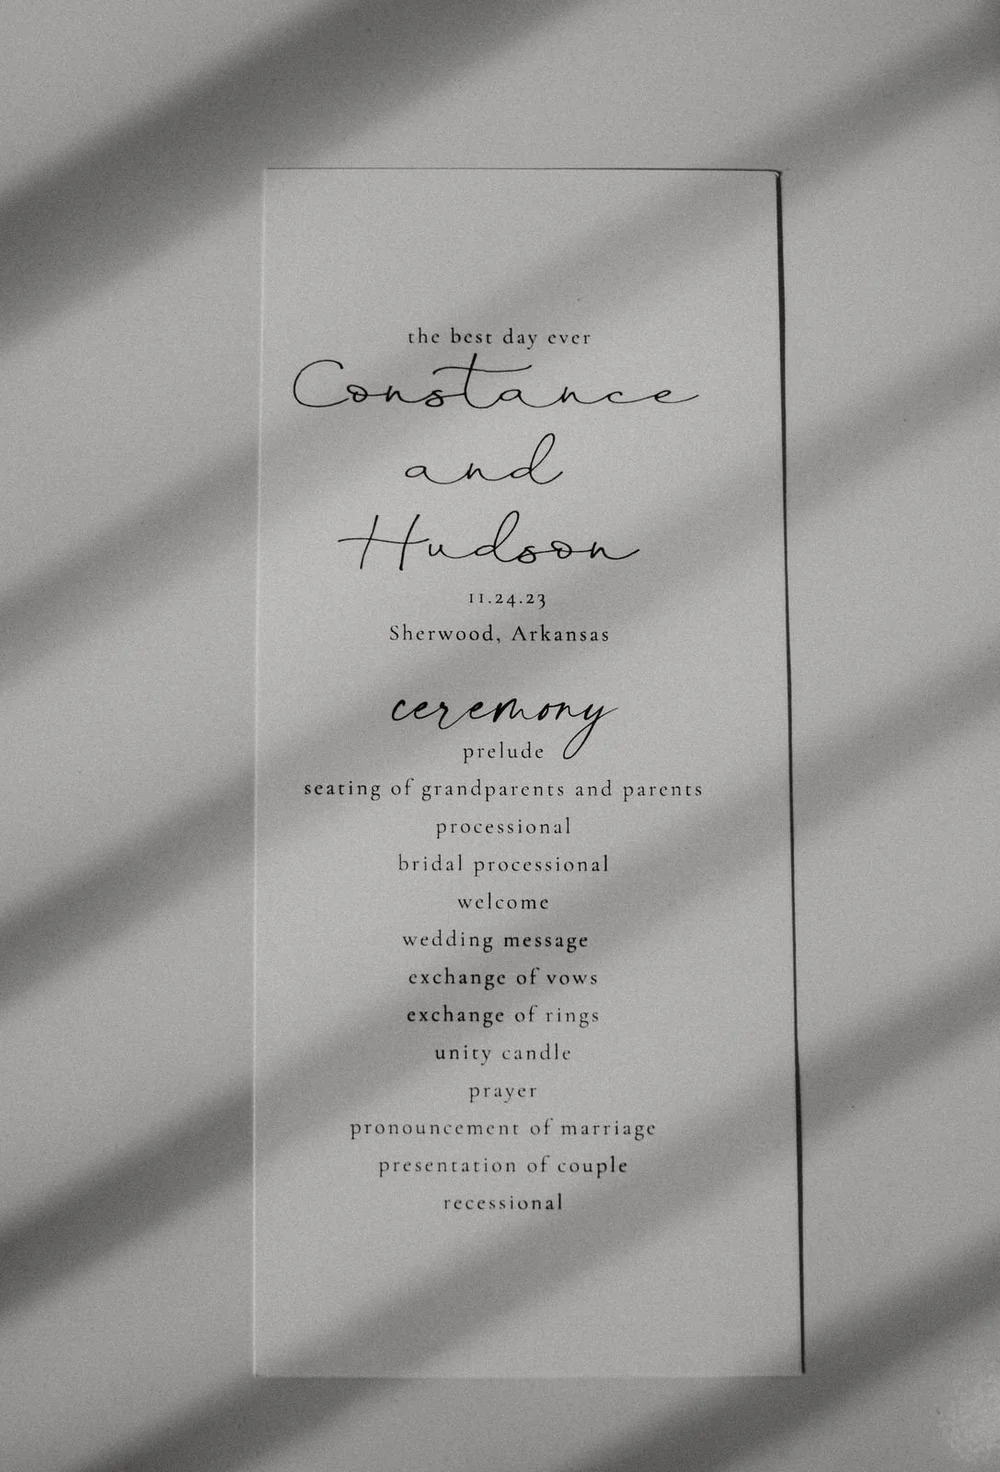 the best day ever
Constance
and
Hudson
11.24.23
Sherwood, Arkansas
ceremony
prelude
seating of grandparents and parents
processional
bridal processional
welcome
wedding message
exchange of vows
exchange of rings
unity candle
prayer
pronouncement of marriage
presentation of couple
recessional